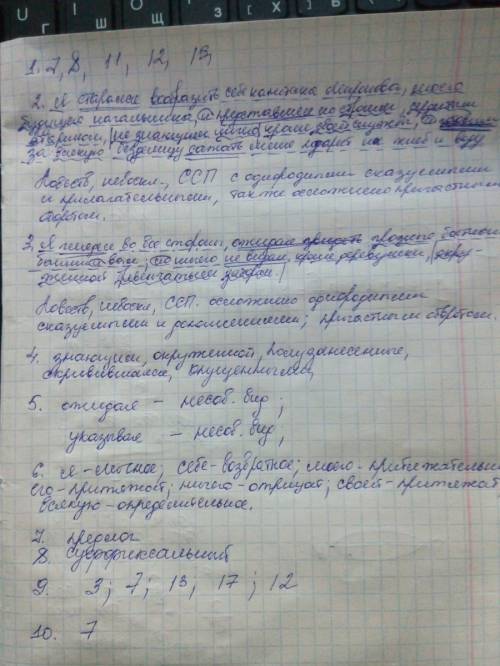 Ш О Л
1. 7, 8, 11, 12, 13,
2. Я старался вообразить себе капитана Миронова, моего
будущего начальника, и представлял его строгим, сердитым
стариком, не знающим ничего, кроме своей службы, и
за всякую безделицу сажать меня под арест на хлеб и воду.
Повеств, невоскл., ССП с однородными сказуемыми
и прилагательными, также осложнено причастным
оборотом.
3. Я глядел во все стороны, ожидая увидеть грозные бастионы
но ничего не видал, кроме деревушки, окру-
женной бревенчатым забором.
Повеств, невоскл, ССП. осложнено однородными
сказуемыми и дополнениями; причастным оборотом.
4. знающим, окруженной, полузанесенные,
скривившаяся, опущенными,
5. ожидая – несов. вид;
указывая – несов. вид;
6. я – личное; себе – возвратное; моего – притяжательн
его – притяжат; ничего – отрицат; своей – притяжат
всякую – определительное.
7. предлог
8. суффиксальный
9. 3; 7; 13, 17; 12
10. 7